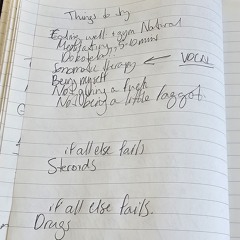 Things to try
Eating well + gym Natural
Meditating, 5-10 mins
Somomatic therapy ← VOCAL
Being myself
Not giving a fuck
Not being a little faggot
if all else fails
Steroids
if all else fails.
Drugs